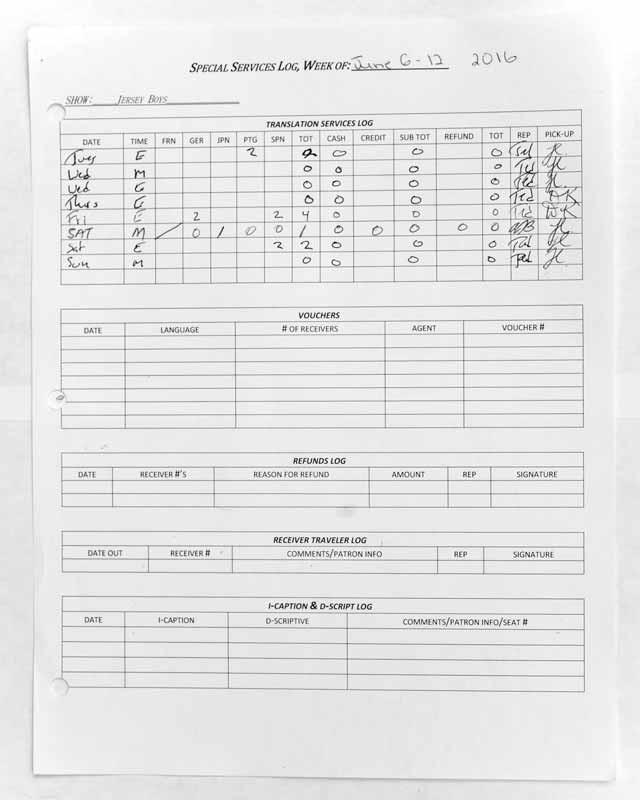 SPECIAL SERVICES LOG, WEEK OF: June 6-12 2016
SHOW: JERSEY BOYS
TRANSLATION SERVICES LOG
DATE TIME FRN GER JPN PTG SPN TOT CASH CREDIT SUB TOT REFUND TOT REP PICK-UP
Tues E 2 2 0 0 0 Ted JL
Wed M 0 0 0 0 Ted JL
Wed E 0 0 0 0 Ted JL
Thurs E 0 0 0 0 Ted DK
Fri E 2 2 4 0 0 0 Ted DK
SAT M / 0 1 0 0 1 0 0 0 0 0 JL
Sat E 2 2 0 0 0 Ted JL
Sun M 0 0 0 0 Ted JL
VOUCHERS
DATE LANGUAGE # OF RECEIVERS AGENT VOUCHER #
REFUNDS LOG
DATE RECEIVER #'S REASON FOR REFUND AMOUNT REP SIGNATURE
RECEIVER TRAVELER LOG
DATE OUT RECEIVER # COMMENTS/PATRON INFO REP SIGNATURE
I-CAPTION & D-SCRIPT LOG
DATE I-CAPTION D-SCRIPTIVE COMMENTS/PATRON INFO/SEAT #